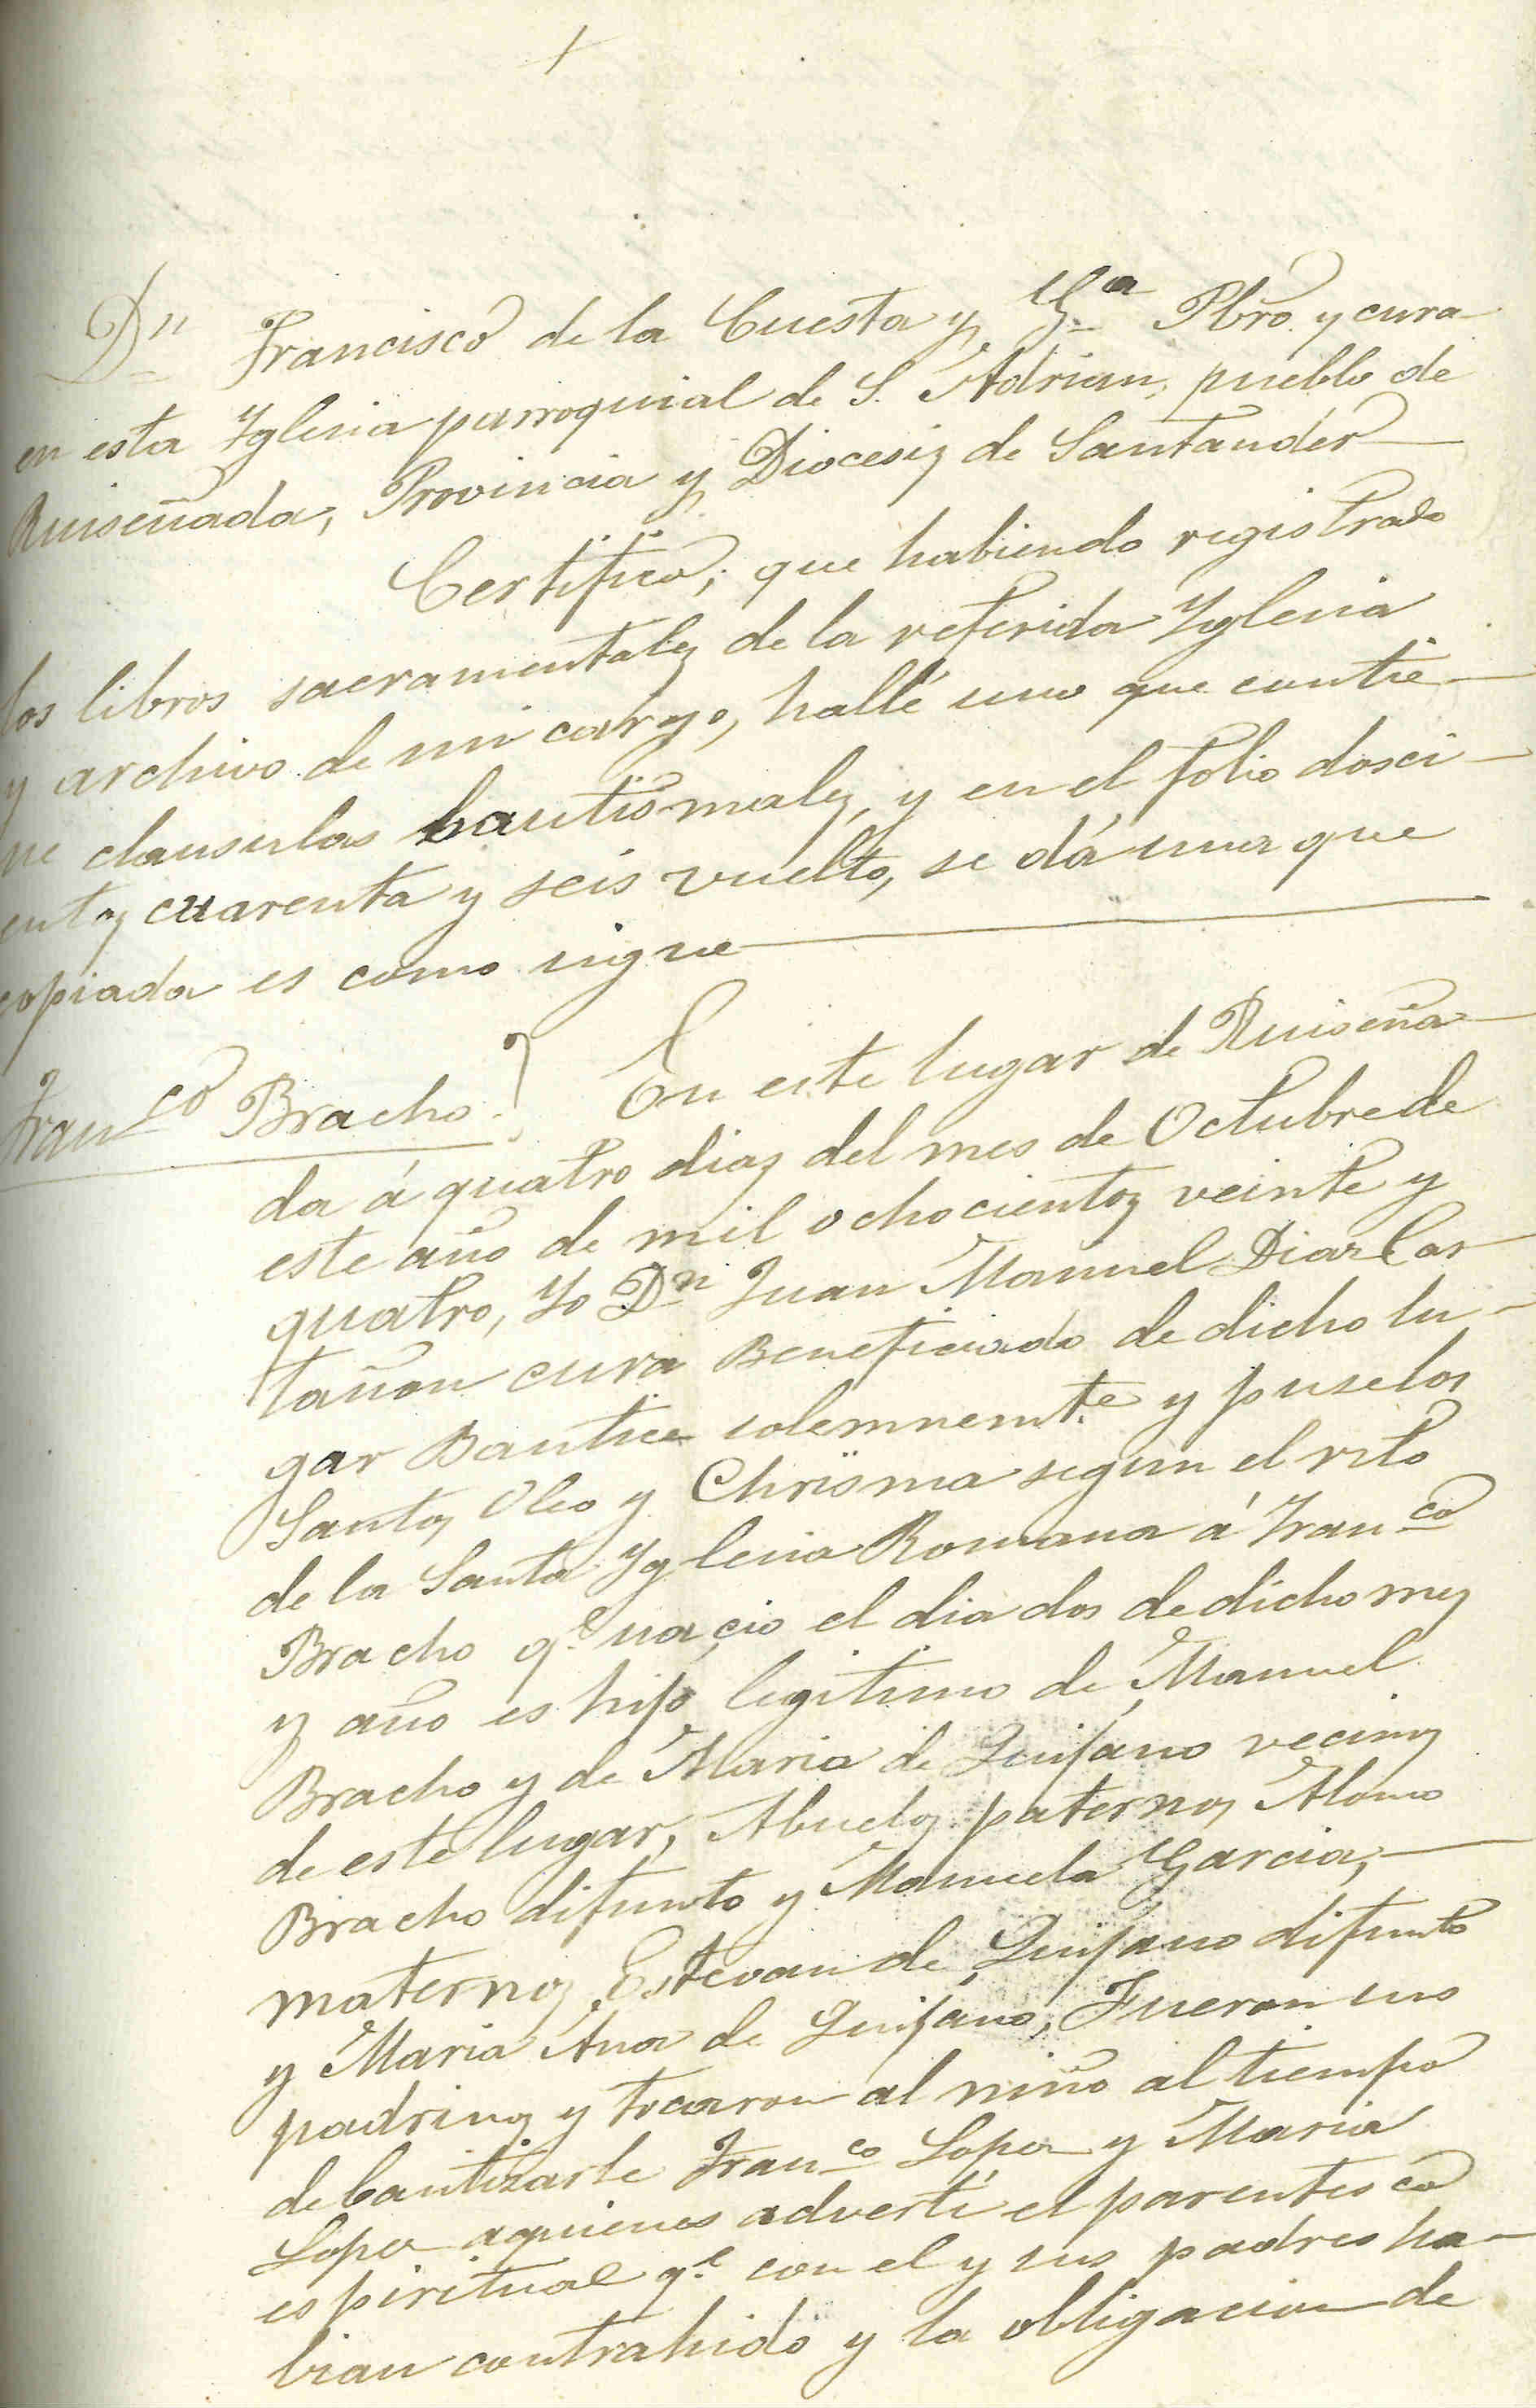 +
Dn Francisco de la Cuesta y Ga Pbro. y cura
en esta Yglesia parroquial de S. Adrian, pueblo de
Ruiseñada, Provincia y Diocesis de Santandér
Certifico; que habiendo registrado
los libros sacramentales de la referida Yglesia
y archivo de mi cargo, hallé uno que contie-
ne clausulas bautismales, y en el folio dosci-
entos cuarenta y seis vuelto, se dá una que
copiada es como sigue
Franco Bracho. En este lugar de Ruiseña-
da á quatro dias del mes de Octubre de
este año de mil ochocientos veinte y
quatro, Yo Dn Juan Manuel Diaz Cas-
tañon cura Beneficiado de dicho lu-
gar Bautice solemnemte y puse los
Santos Oleo y Chrisma segun el rito
de la Santa Yglesia Romana á Franco
Bracho qe nacio el dia dos de dicho mes
y año es hijo legitimo de Manuel
Bracho y de Maria de Quijano vecinos
de este lugar, Abuelos paternos Alonso
Bracho difunto y Manuela Garcia,
maternos Estevan de Quijano difunto
y Maria Ana de Quijano, Fueron sus
padrinos y tocaron al niño al tiempo
de bautizarle Franco Lopez y Maria
Lopez a quienes adverti el parentesco
espiritual qe con el y sus padres ha-
bian contrahido y la obligacion de